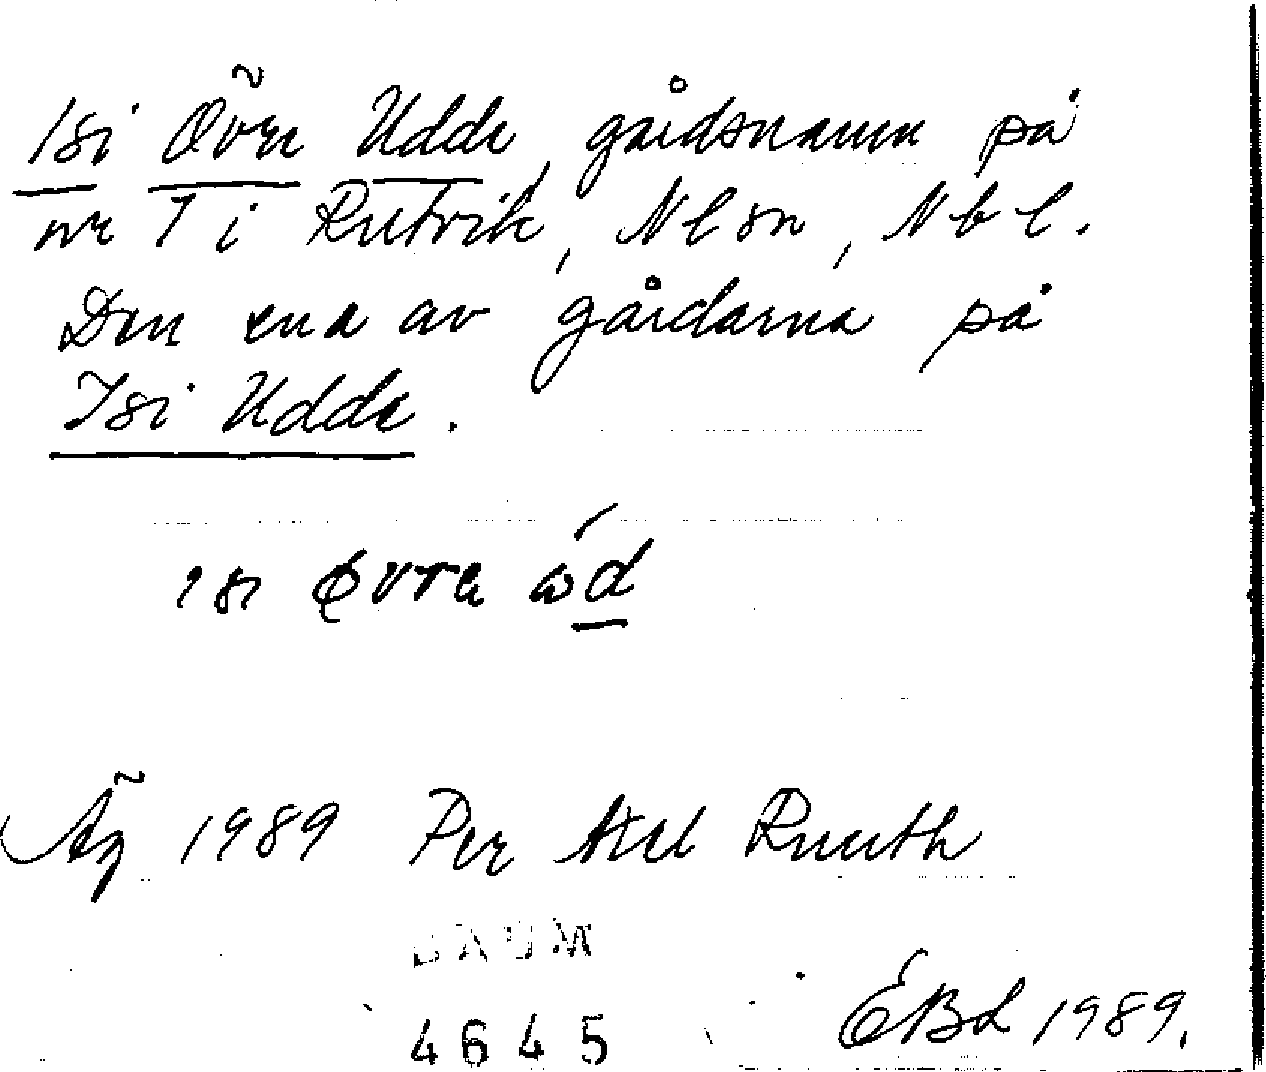 Isi Övre Udde, gårdsnamn på
nr 7 i Rutvik, Nlsn, Nbl.
Den ena av gårdarna på
Isi Udde.
Äg 1989 Per Axel Ruuth
DAUM
4645 EBL 1989.